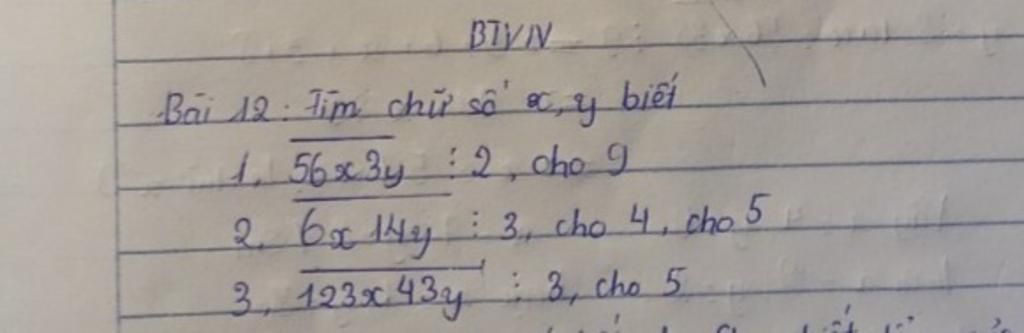 BTVN
Bài 12: Tìm chữ số x, y biết
1, 56x3y ⋮ 2, cho 9
2, 6x14y ⋮ 3, cho 4, cho 5
3, 123x43y ⋮ 3, cho 5